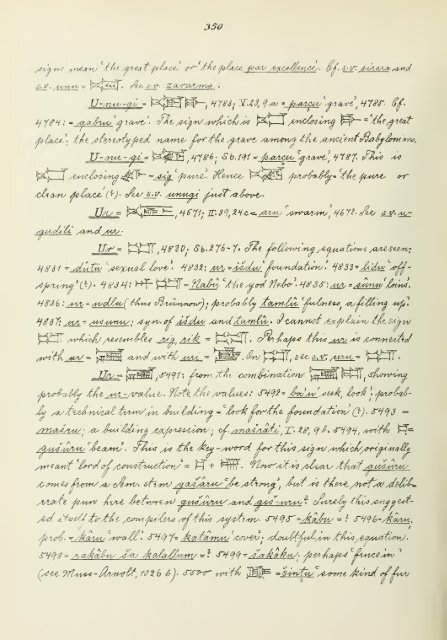 350
signs, mean 'the great place' or 'the place par excellence'. Cf. s.v. sirara and
s.v. unu = . See s.v. zararma.
U-nu-gi = , 4783; V. 23, 9.a = parçu 'grave', 4785. Cf.
4784: = qabru 'grave'. The sign which is enclosing = 'the great
place', the stereotyped name for the grave among the ancient Babylonians.
U-nu-gi = , 4786; Sb. 191 = parçu 'grave', 4787. This is
enclosing = sig 'pure'. Hence probably = 'the pure or
clean place' (?). See s.v. unugi just above.
Ur = , 4671; II. 39, 24c = aru 'swarm', 4672. See s.v. u-
gudili and ur.
Ur = , 4820; Sb. 276-7. The following equations are seen:
4831 = dûtu 'sexual love'. 4832: ur = išdu 'foundation'. 4833 = lidu 'off-
spring' (?). 4834: = Nabû 'the god Nebo'. 4835: ur = sûnu 'loins'.
4836: ur = udlu (thus Brünnow); probably tamlû 'fulness, a filling up'.
4837: ur = usunu; syn. of išdu and tamlû. I cannot explain the sign
which resembles rig, rik = . Perhaps this ur is connected
with ur = and with uru = . On , see s.v. uru = .
Ur = , 5491; from the combination , showing
probably the ur-value. Note the values: 5492 = ba'u 'seek, look'; probab-
ly a technical term in building = 'look for the foundation' (?). 5493 =
mašru; a building expression; cf. mašrâti, I. 28, 9b. 5494, with =
gušûru 'beam'. This is the key-word for this sign which originally
meant 'lord of construction' = + . Now it is clear that gušûru
comes from a Sem. stem gašâru 'be strong', but is there not a delib-
erate pun here between gušûru and giš-uru? Surely this suggest-
ed itself to the compilers of this system. 5495 = kâbu = ? 5496 = kâru,
prob. = kâru 'wall'. 5497 = katâmu 'cover'; doubtful in this equation.
5498 = rakâbu ša kalallum = ? 5499 = šakâku; perhaps 'fence in'
(see Muss-Arnolt, 1026 b). 5500 with = šintu 'some kind of fur